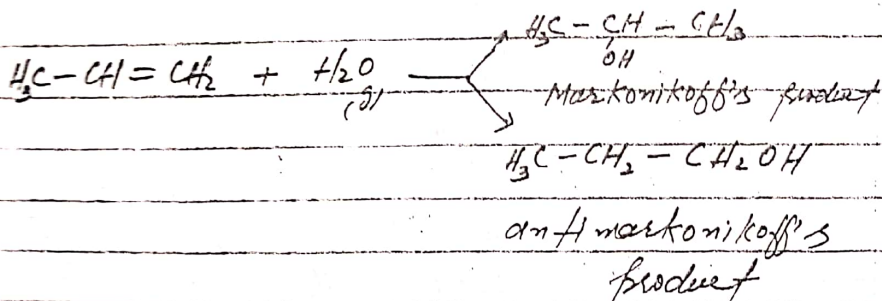 H₃C - CH - CH₃
OH
H₃C-CH = CH₂ + H₂O
(g)
Markonikoff's product
H₃C-CH₂ - CH₂OH
antimarkonikoff's
product